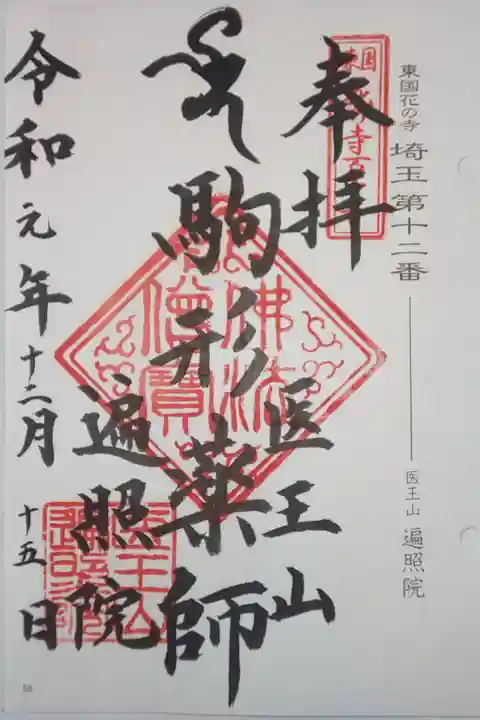 東国花の寺 埼玉第十二番 医王山 遍照院
奉拝
医王山
駒形薬師
遍照院
令和元年十二月十五日
佛法僧寳